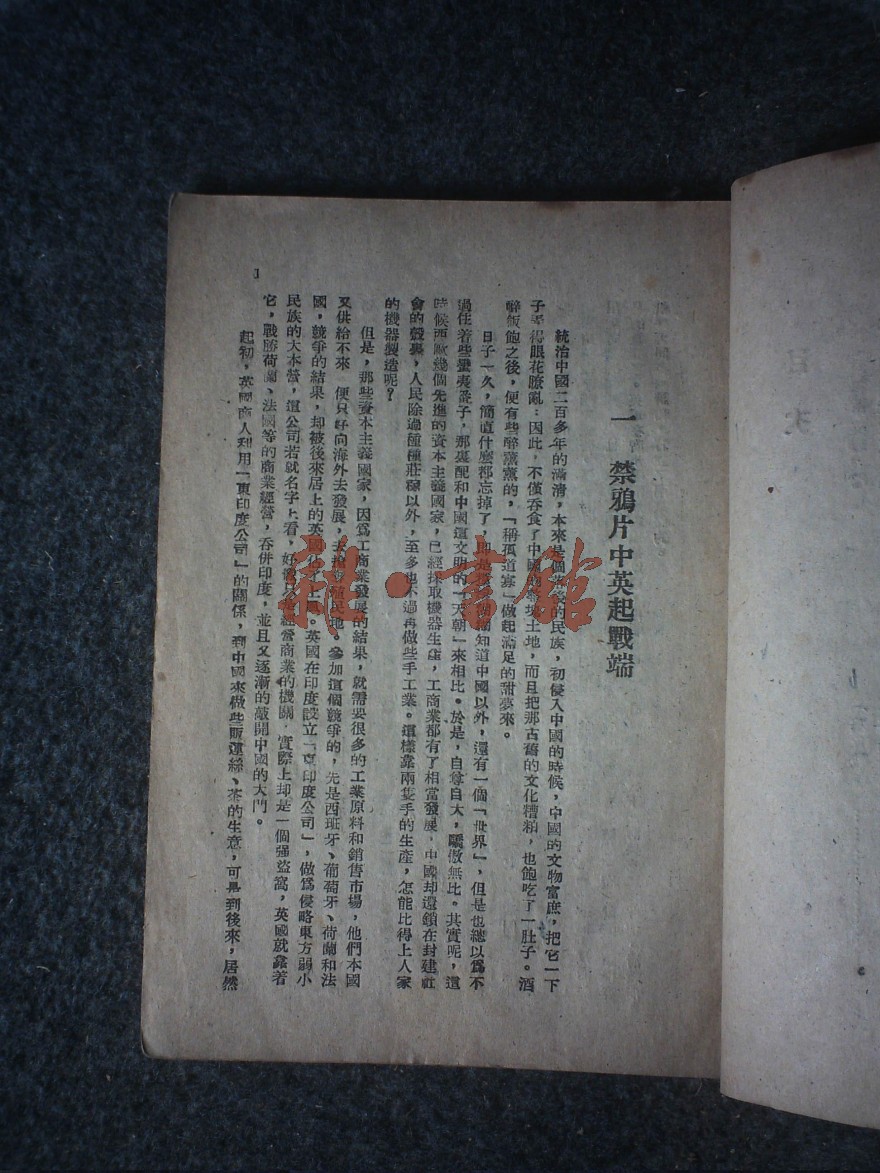 一 禁鴉片中英起戰端
統治中國二百多年的滿清，本來是個落後的民族，初侵入中國的時候，中國的文物富庶，把它一下
子弄得眼花瞭亂：因此，不僅吞食了中國這整塊土地，而且把那古舊的文化糟粕，也飽吃了一肚子。酒
醉飯飽之後，便有些醉薰薰的，「稱孤道寡」做起滿足的甜夢來。
日子一久，簡直什麼都忘掉了，即是知道中國以外，還有一個「世界」，但是也總以爲不
過住着些蠻夷，那裏配和中國這文明的「天朝」來相比。於是，自尊自大，驕傲無比。其實呢，這
時候西歐幾個先進的資本主義國家，已經採取機器生產，工商業都有了相當發展，中國却還鎖在封建社
會的，人民除過種種莊稼以外，至多也不過再做些手工業。這樣靠兩隻手的生產，怎能比得上人家
的機器製造呢？
但是，那些資本主義國家，因爲工商業發展的結果，就需要很多的工業原料和銷售市場，他們本國
又供給不來，便只好向海外去發展，去搶奪殖民地。參加這個競爭的，先是西班牙、葡萄牙、荷蘭和法
國，競爭的結果，却被後來居上的英國佔了上風。英國在印度設立「東印度公司」，做爲侵略東方弱小
民族的大本營，這公司若就名字上看，好像只是經營商業的機關，實際上却是一個强盜窩，英國就靠着
它，戰勝荷蘭、法國等的商業經營，吞併印度，並且又逐漸的敲開中國的大門。
起初，英國商人利用「東印度公司」的關係，到中國來做些販運絲、茶的生意，可是到後來，居然
1
雜·書館